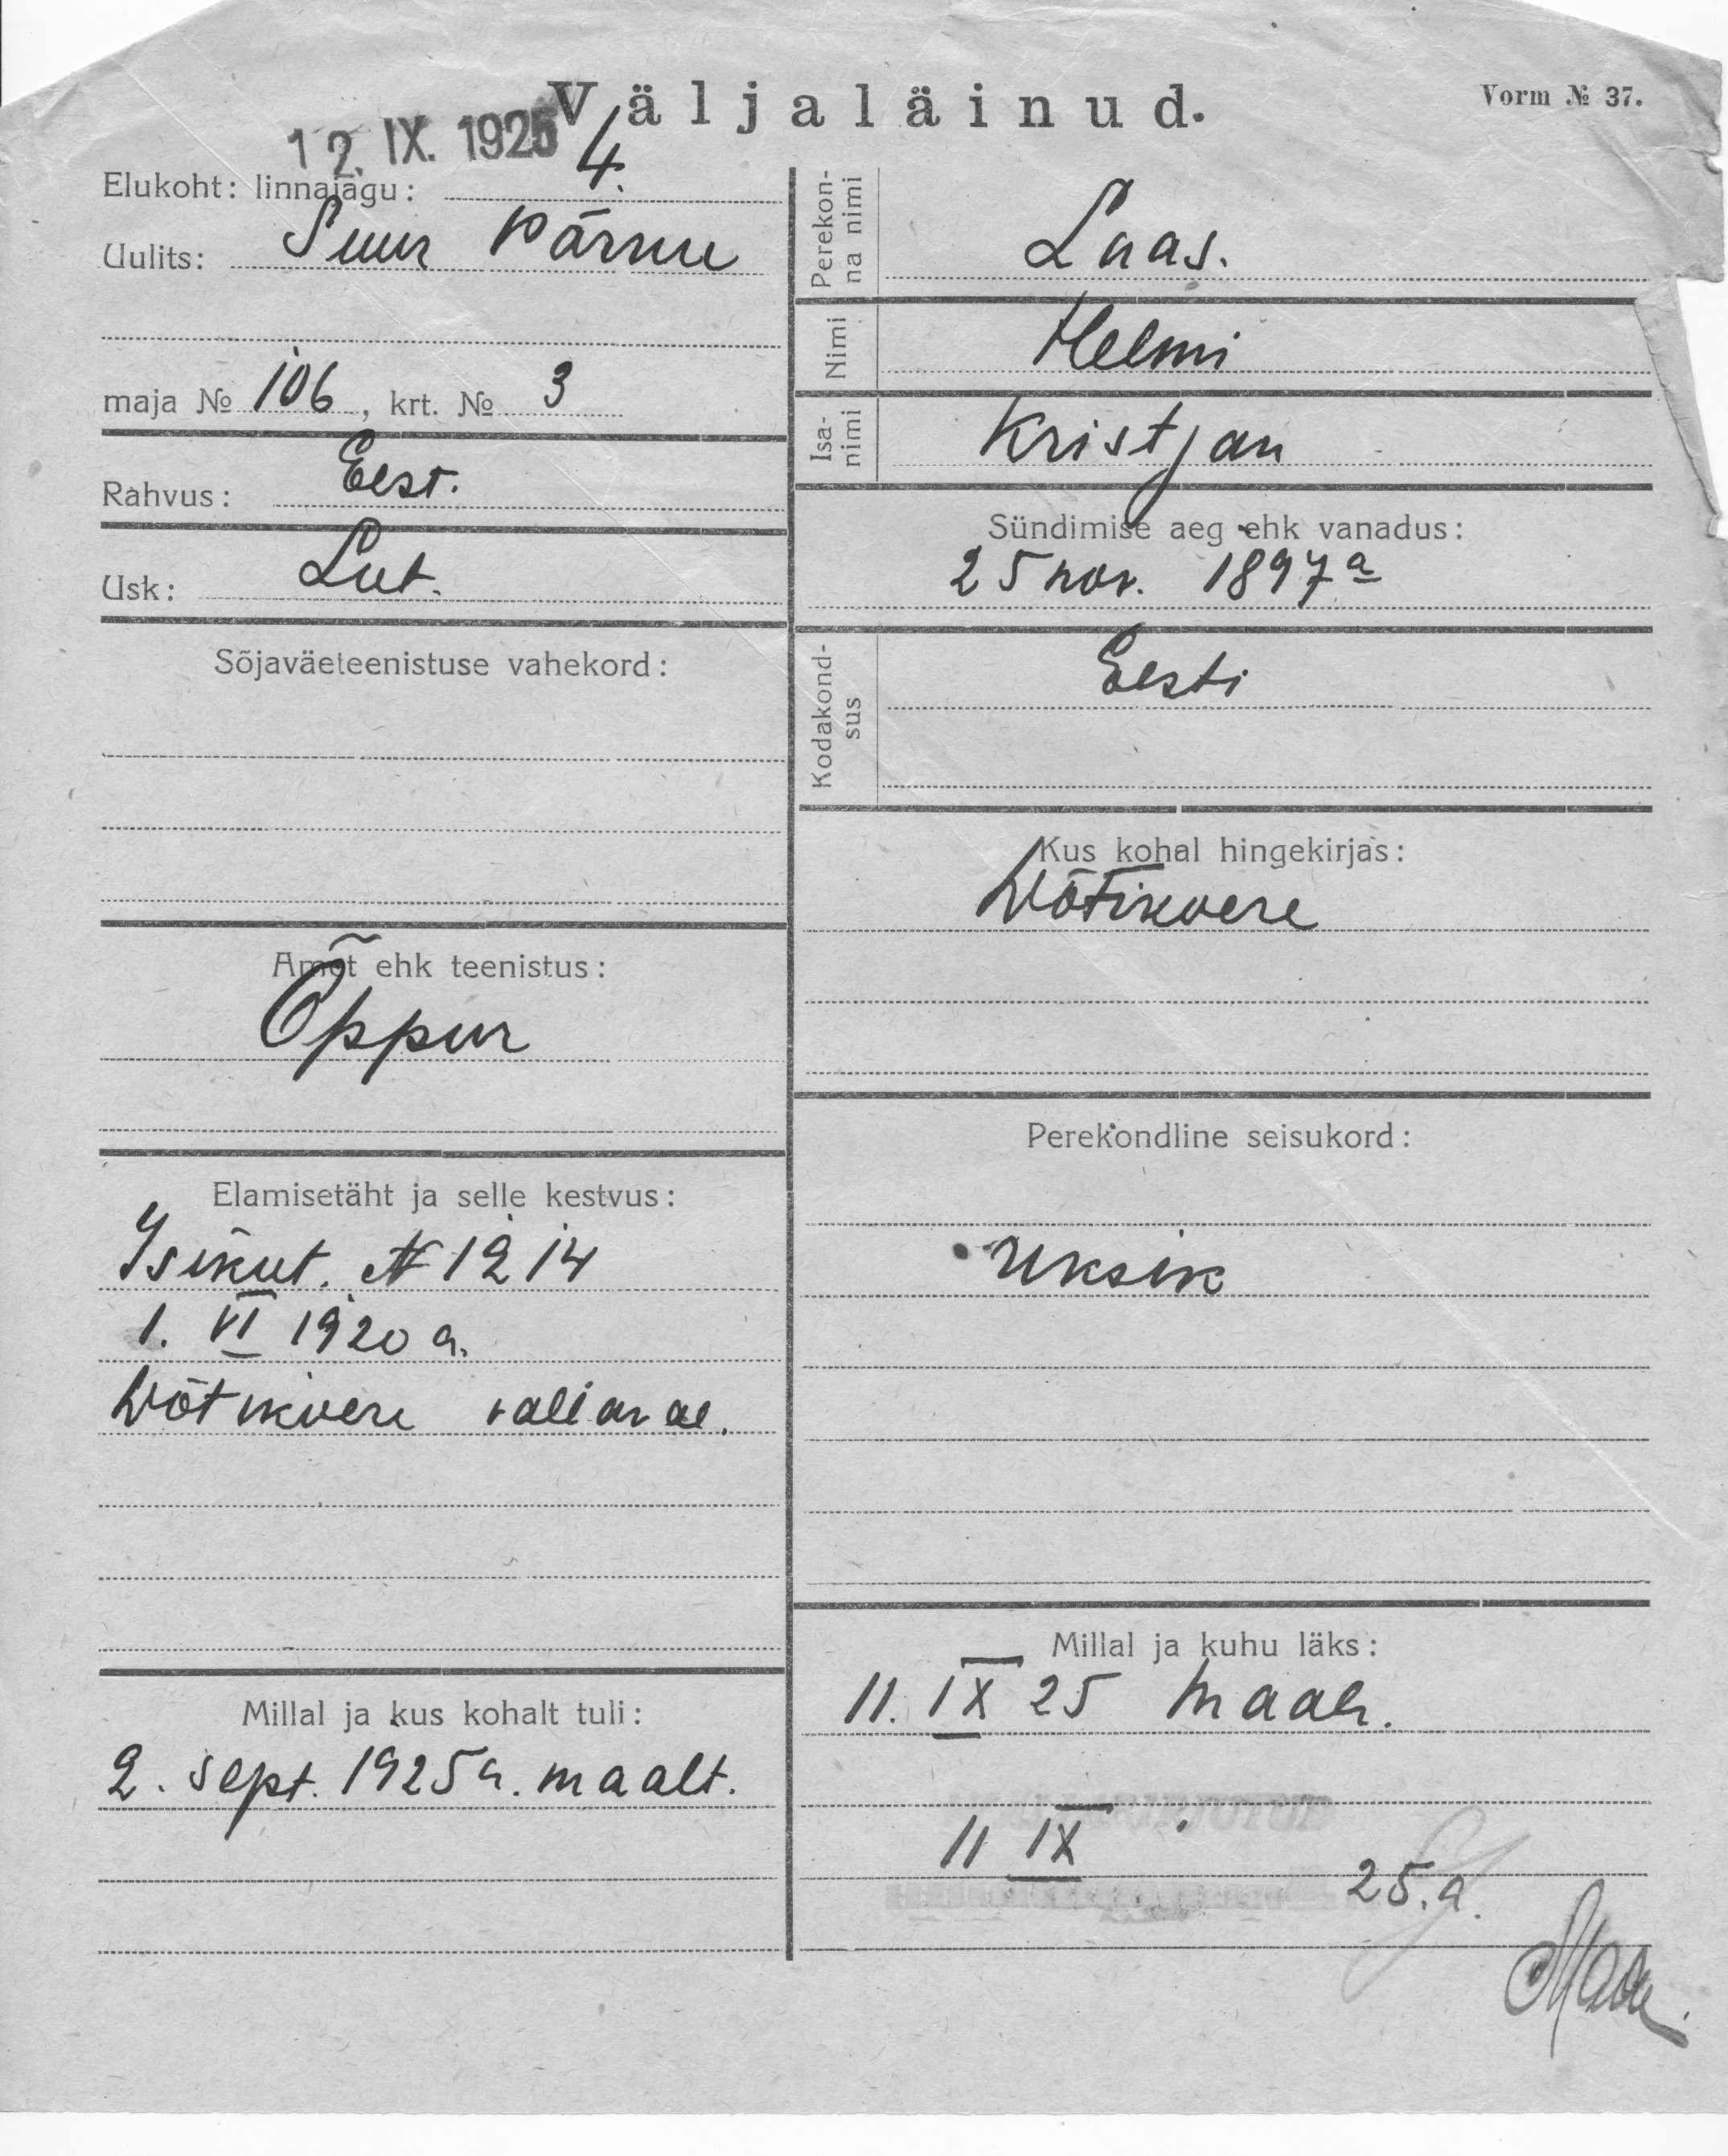 Väljaläinud.
Vorm № 37.
12. IX. 1925
Elukoht: linnajagu: 4.
Uulits: Suur Pärnu
maja № 106, krt. № 3
Rahvus: Eest.
Usk: Lut.
Sõjaväeteenistuse vahekord:
Amet ehk teenistus:
Õppur
Elamisetäht ja selle kestvus:
Isikut. № 1214
1. VI 1920 a.
Wõtikvere
Millal ja kus kohalt tuli:
2. sept. 1925 a. maalt.
Perekon-
na nimi
Laas.
Nimi
Helmi
Isa-
nimi
Kristjan
Sündimise aeg ehk vanadus:
25 nov. 1897 a
Kodakond-
sus
Eesti
Kus kohal hingekirjas:
Wõtikvere
Perekondline seisukord:
Üksik
Millal ja kuhu läks:
11. IX 25 maale.
11 IX
25. a.